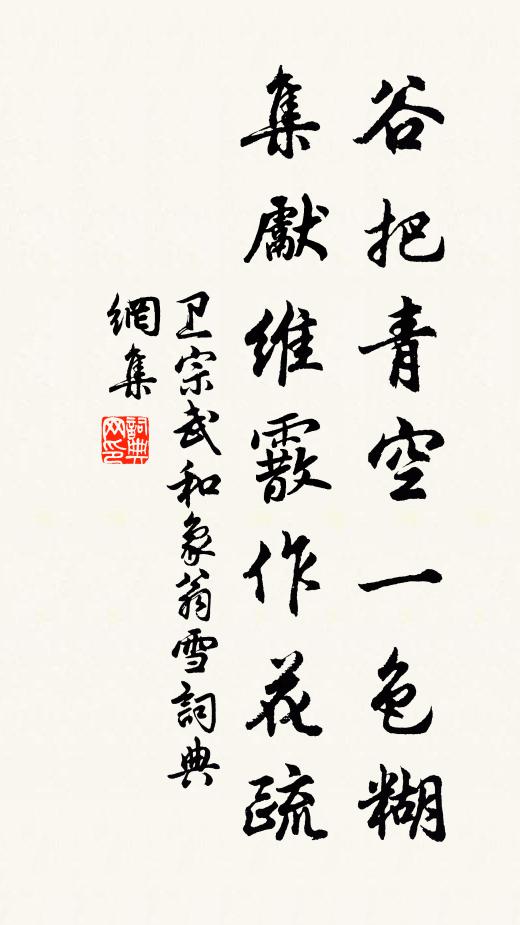 谷把青空一色糊
集獻維霰作花疏
卫宗武和象翁雪詞典
網集
詞典
网印